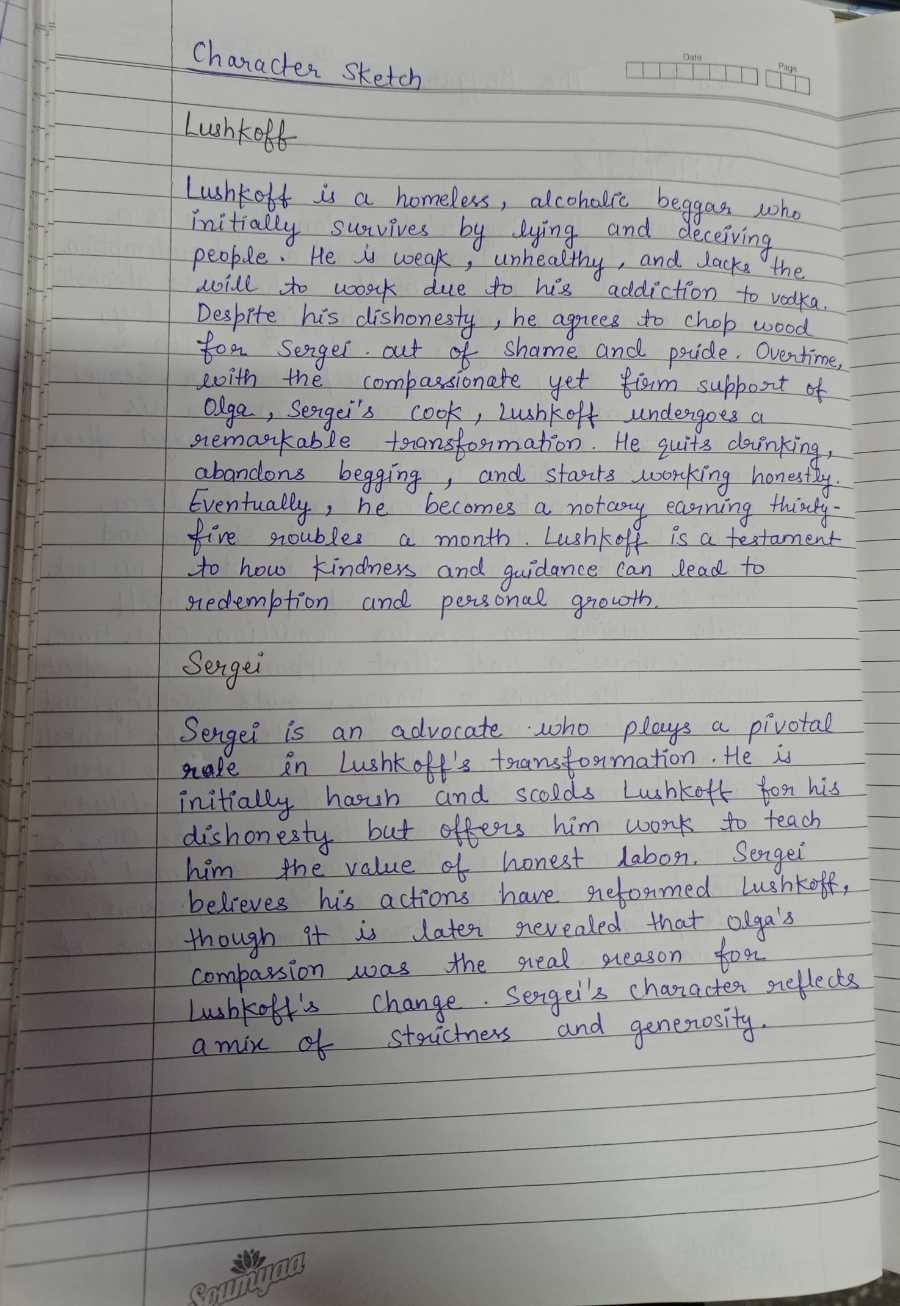 Character Sketch
Date
Page
Lushkoff
Lushkoff is a homeless, alcoholic beggar who
initially survives by lying and deceiving
people. He is weak, unhealthy, and lacks the
will to work due to his addiction to vodka.
Despite his dishonesty, he agrees to chop wood
for Sergei. out of shame and pride. Overtime,
with the compassionate yet firm support of
Olga, Sergei's cook, Lushkoff undergoes a
remarkable transformation. He quits drinking,
abandons begging, and starts working honestly.
Eventually, he becomes a notary earning thirty-
five roubles a month. Lushkoff is a testament
to how kindness and guidance can lead to
redemption and personal growth.
Sergei
Sergei is an advocate who plays a pivotal
role in Lushkoff's transformation. He is
initially harsh and scolds Lushkoff for his
dishonesty but offers him work to teach
him the value of honest labor. Sergei
believes his actions have reformed Lushkoff,
though it is later revealed that Olga's
compassion was the real reason for
Lushkoff's change. Sergei's character reflects
a mix of strictness and generosity.
Soumyaa